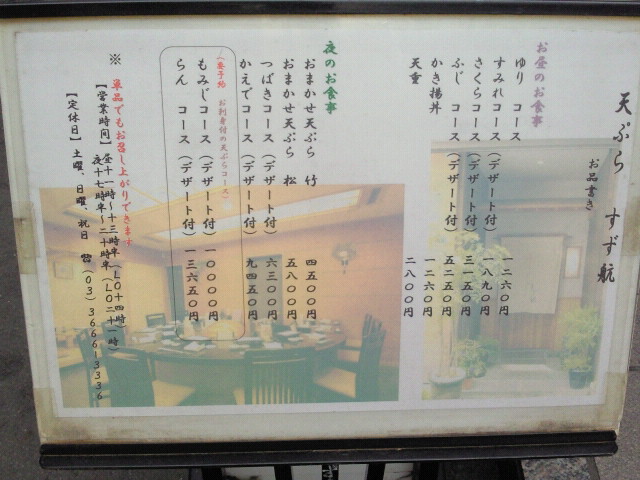 天ぷら すず航
お品書き
お昼のお食事
ゆり コース 一二六〇円
すみれコース(デザート付) 一八九〇円
さくらコース(デザート付) 三一五〇円
ふじ コース(デザート付) 五二五〇円
かき揚丼 一二六〇円
天重 二八〇〇円
夜のお食事
おまかせ天ぷら 竹 四五〇〇円
おまかせ天ぷら 松 五八〇〇円
つばきコース(デザート付) 六三〇〇円
かえでコース(デザート付) 九四五〇円
(要予約 お刺身付の天ぷらコース)
もみじコース(デザート付) 一〇〇〇〇円
らん コース(デザート付) 一三六五〇円
※ 単品でもお召し上がりできます
【営業時間】昼十一時~十三時半(LO十四時)
夜十七時半~二十時半(LO二十一時)
【定休日】土曜、日曜、祝日 ☎(03)3666-3336